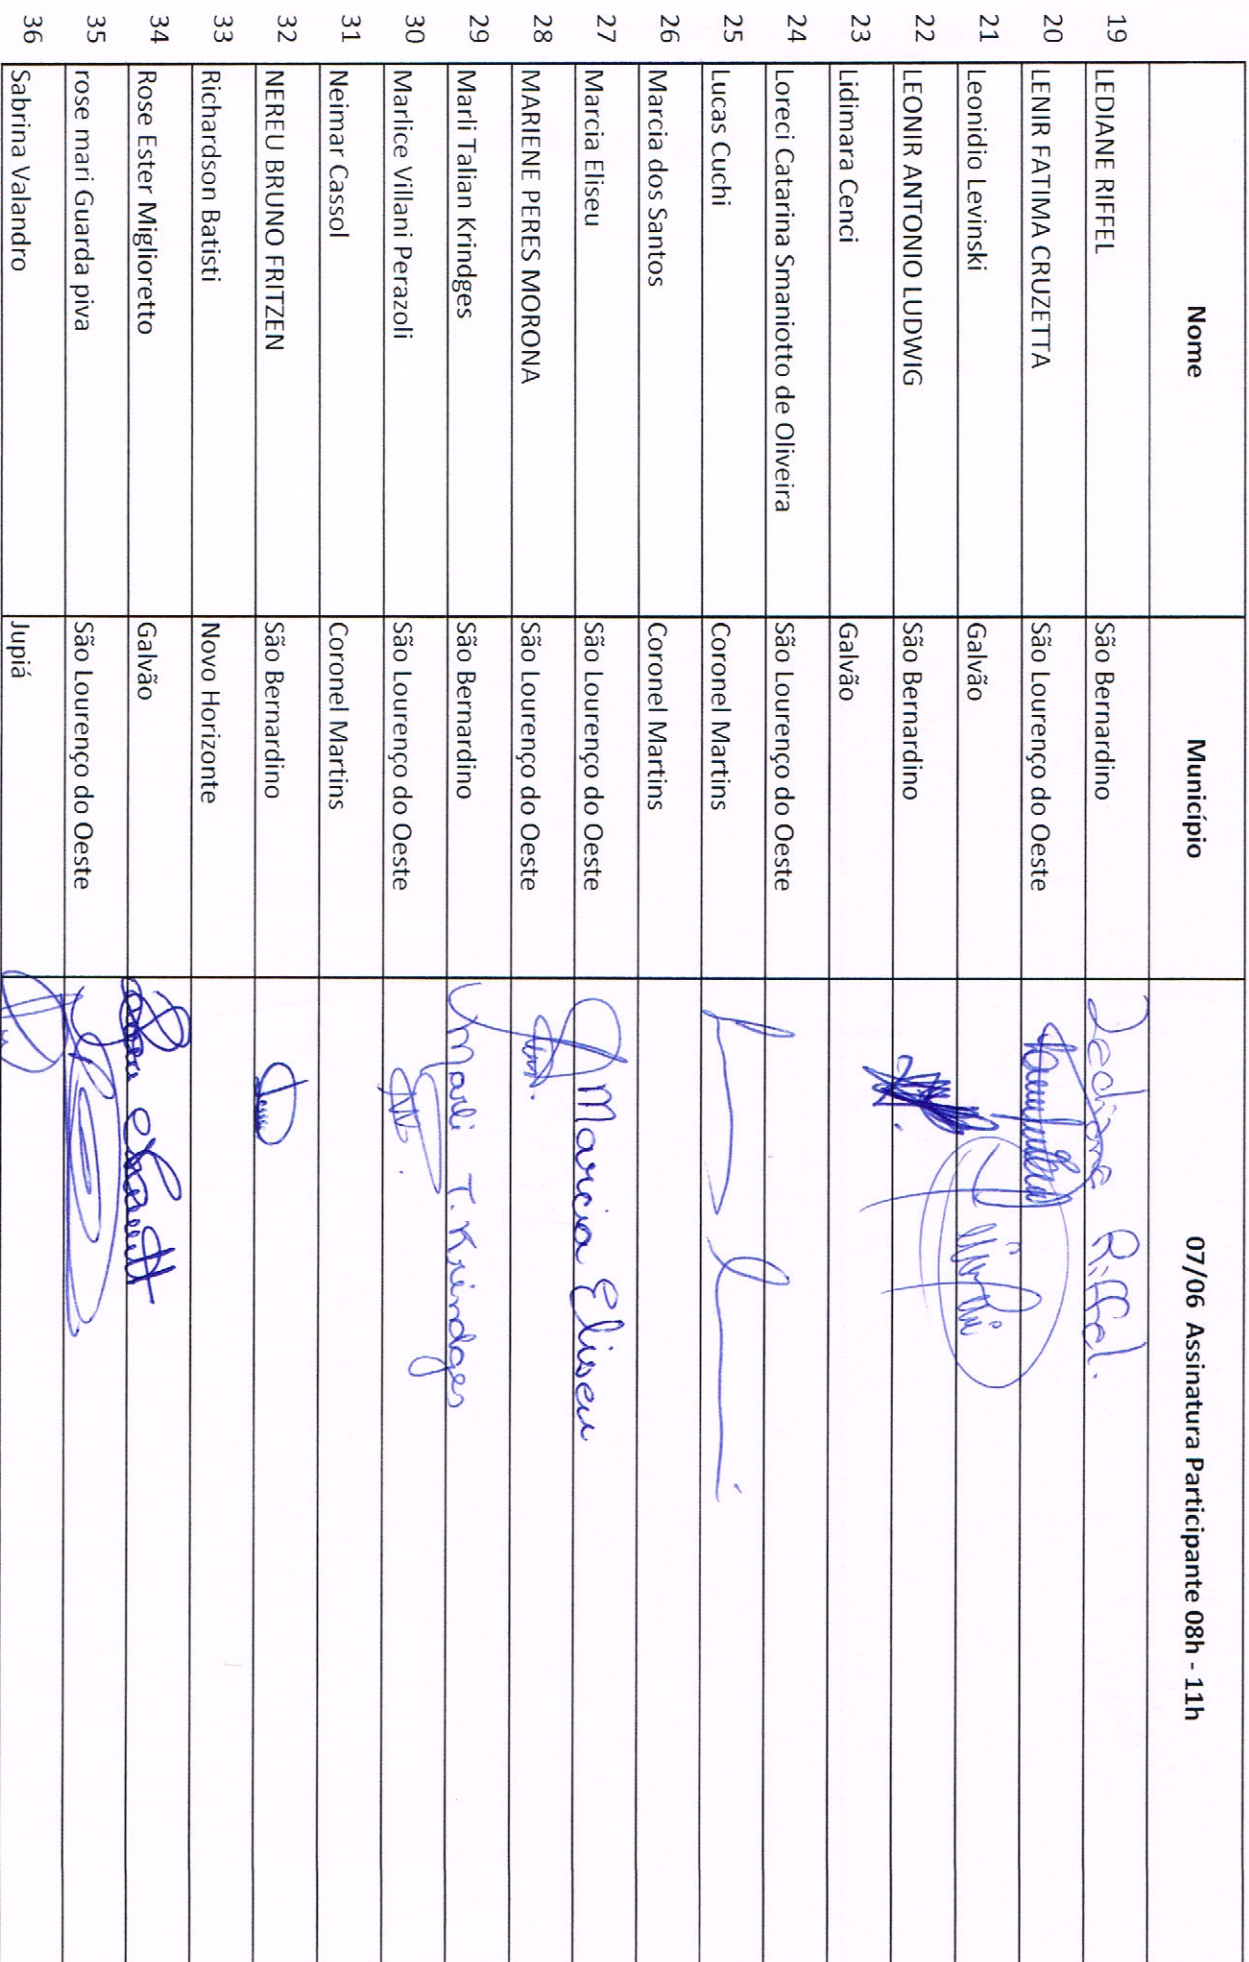 Nome Município 07/06 Assinatura Participante 08h - 11h
19 LEDIANE RIFFEL São Bernardino Lediane Riffel.
20 LENIR FATIMA CRUZETTA São Lourenço do Oeste
21 Leonidio Levinski Galvão
22 LEONIR ANTONIO LUDWIG São Bernardino
23 Lidimara Cenci Galvão
24 Loreci Catarina Smaniotto de Oliveira São Lourenço do Oeste
25 Lucas Cuchi Coronel Martins
26 Marcia dos Santos Coronel Martins
27 Marcia Eliseu São Lourenço do Oeste Marcia Eliseu
28 MARIENE PERES MORONA São Lourenço do Oeste
29 Marli Talian Krindges São Bernardino Marli T. Krindges
30 Marlice Villani Perazoli São Lourenço do Oeste
31 Neimar Cassol Coronel Martins
32 NEREU BRUNO FRITZEN São Bernardino
33 Richardson Batisti Novo Horizonte
34 Rose Ester Miglioretto Galvão
35 rose mari Guarda piva São Lourenço do Oeste
36 Sabrina Valandro Jupiá